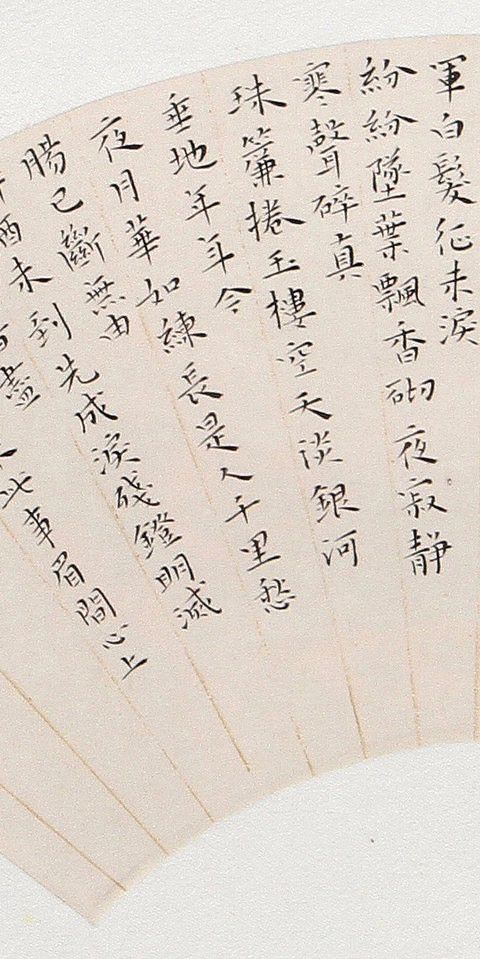 軍白髮征未淚
紛紛墜葉飄香砌夜寂靜
寒聲碎真
珠簾捲玉樓空天淡銀河
垂地年年今
夜月華如練長是人千里愁
腸已斷無由
酒未到先成淚殘鐙明滅
盡
此事眉間心上